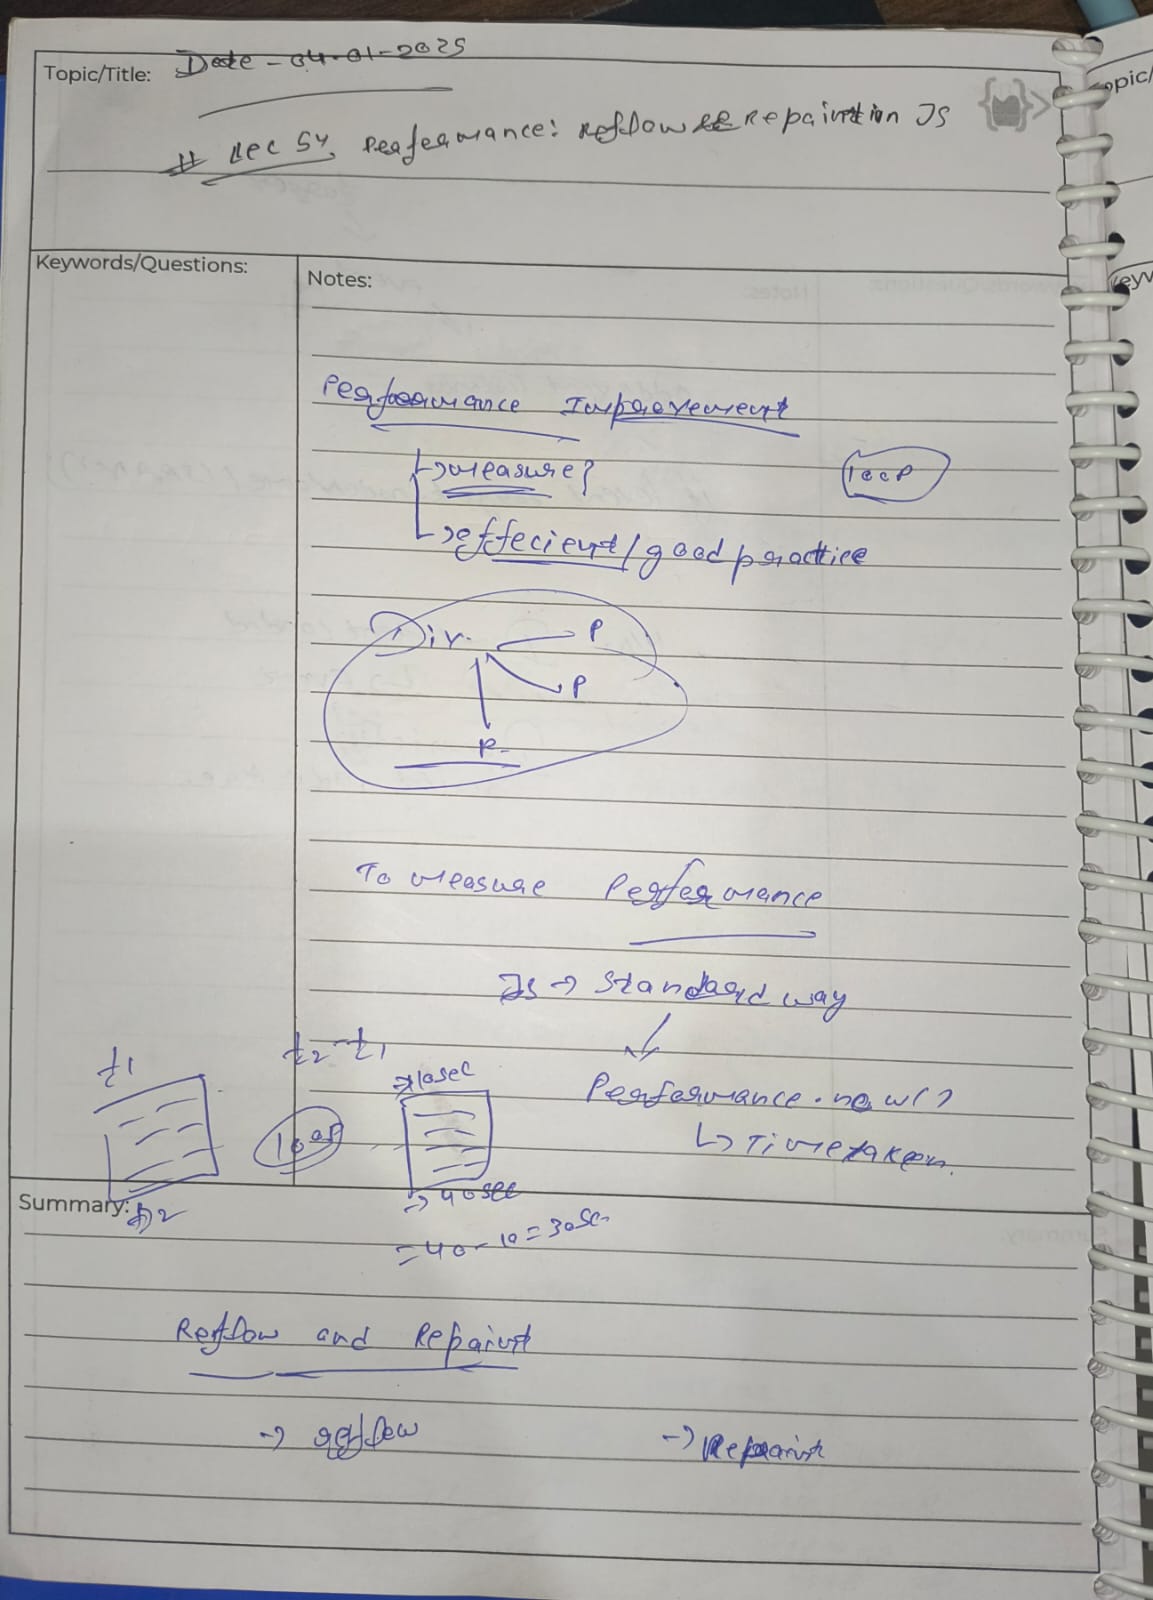 Topic/Title: Date - 04-01-2025
# Lec 54. Performance: Reflow & Repaint in JS
Keywords/Questions:
Notes:
Performance Improvement
↳ measure?
loop
↳ effecient/good practice
Div.
P
P
P
To measure Performance
JS → Standard way
Performance.now()
↳ Time taken.
t1
t2 - t1
→ 10sec
loop
→ 40sec
t2
= 40 - 10 = 30sec
Summary:
Reflow and Repaint
→ reflow → Repaint